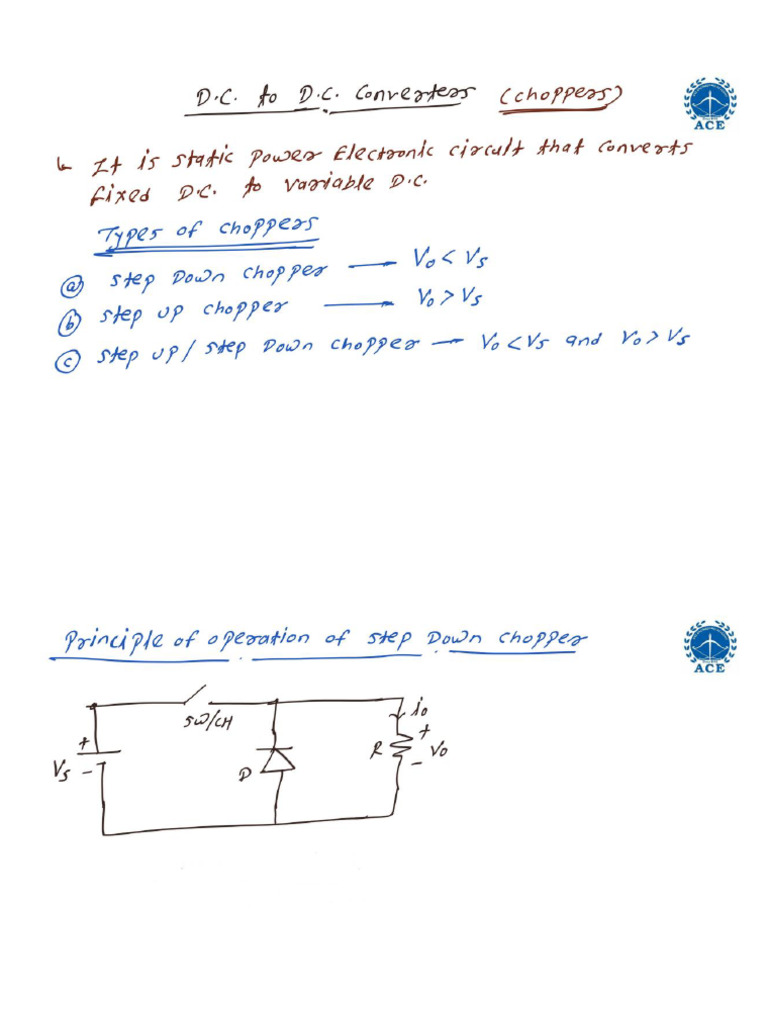 D.C. to D.C. Converters (choppers)
ACE
↳ It is static power Electronic circuit that converts
fixed D.C. to variable D.C.
Types of choppers
(a) Step Down chopper → Vo < Vs
(b) Step up chopper → Vo > Vs
(c) Step up / Step Down chopper → Vo < Vs and Vo > Vs
Principle of operation of step Down chopper
ACE
SW/CH
io
+
Vs
-
D
R
+
Vo
-